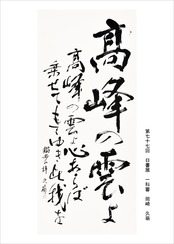 高峰の雲よ
高峰の雲よ心あらば
乗せてもてゆき此我を
第七十七回 日書展 一科審 岡崎 久華